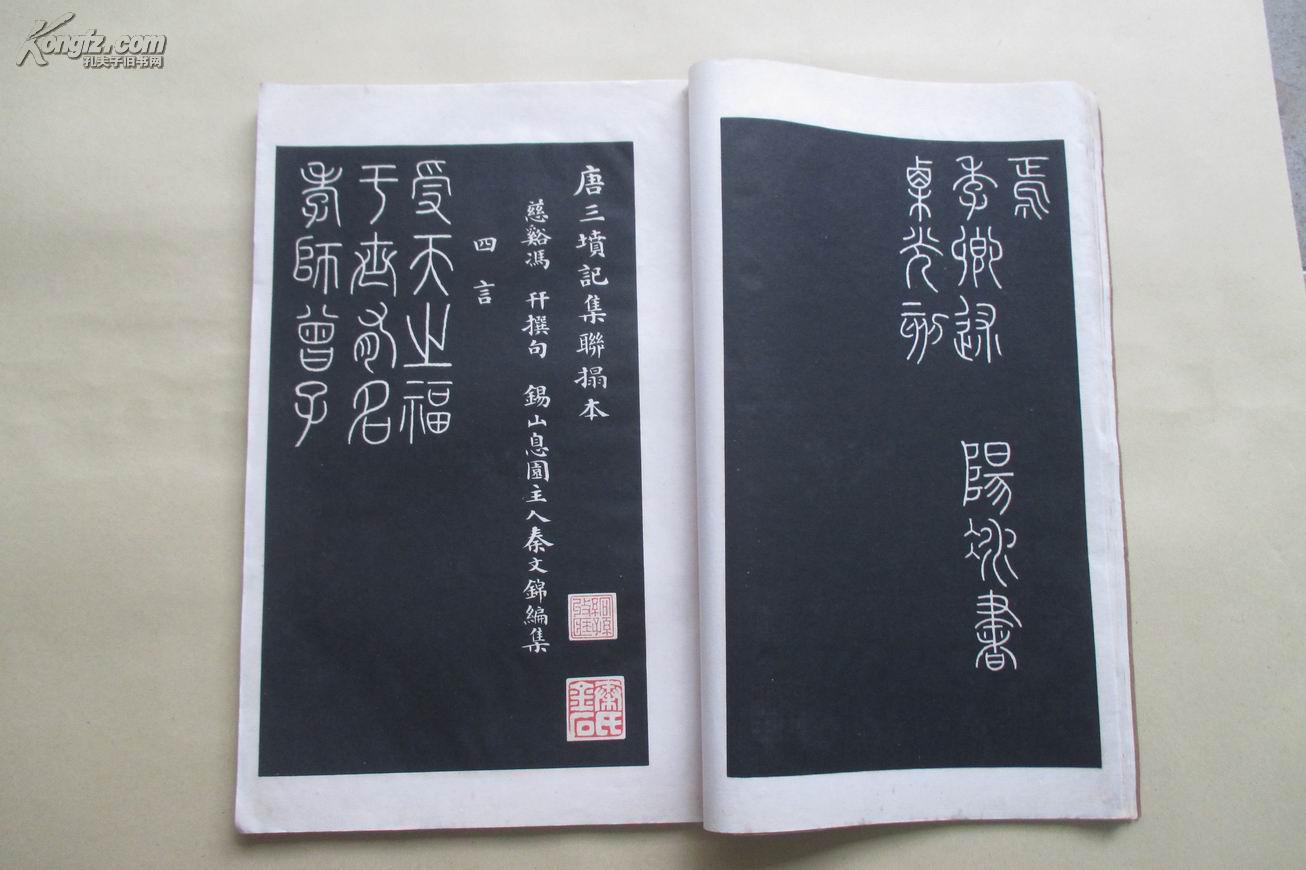 Kongfz.com
孔夫子旧书网
焉
季卿述 陽冰書
栗光刻
唐三墳記集聯搨本
慈谿馮幵撰句 錫山息園主人秦文錦編集
四言
受天之福
于世有名
孝師曾子
秦氏金石